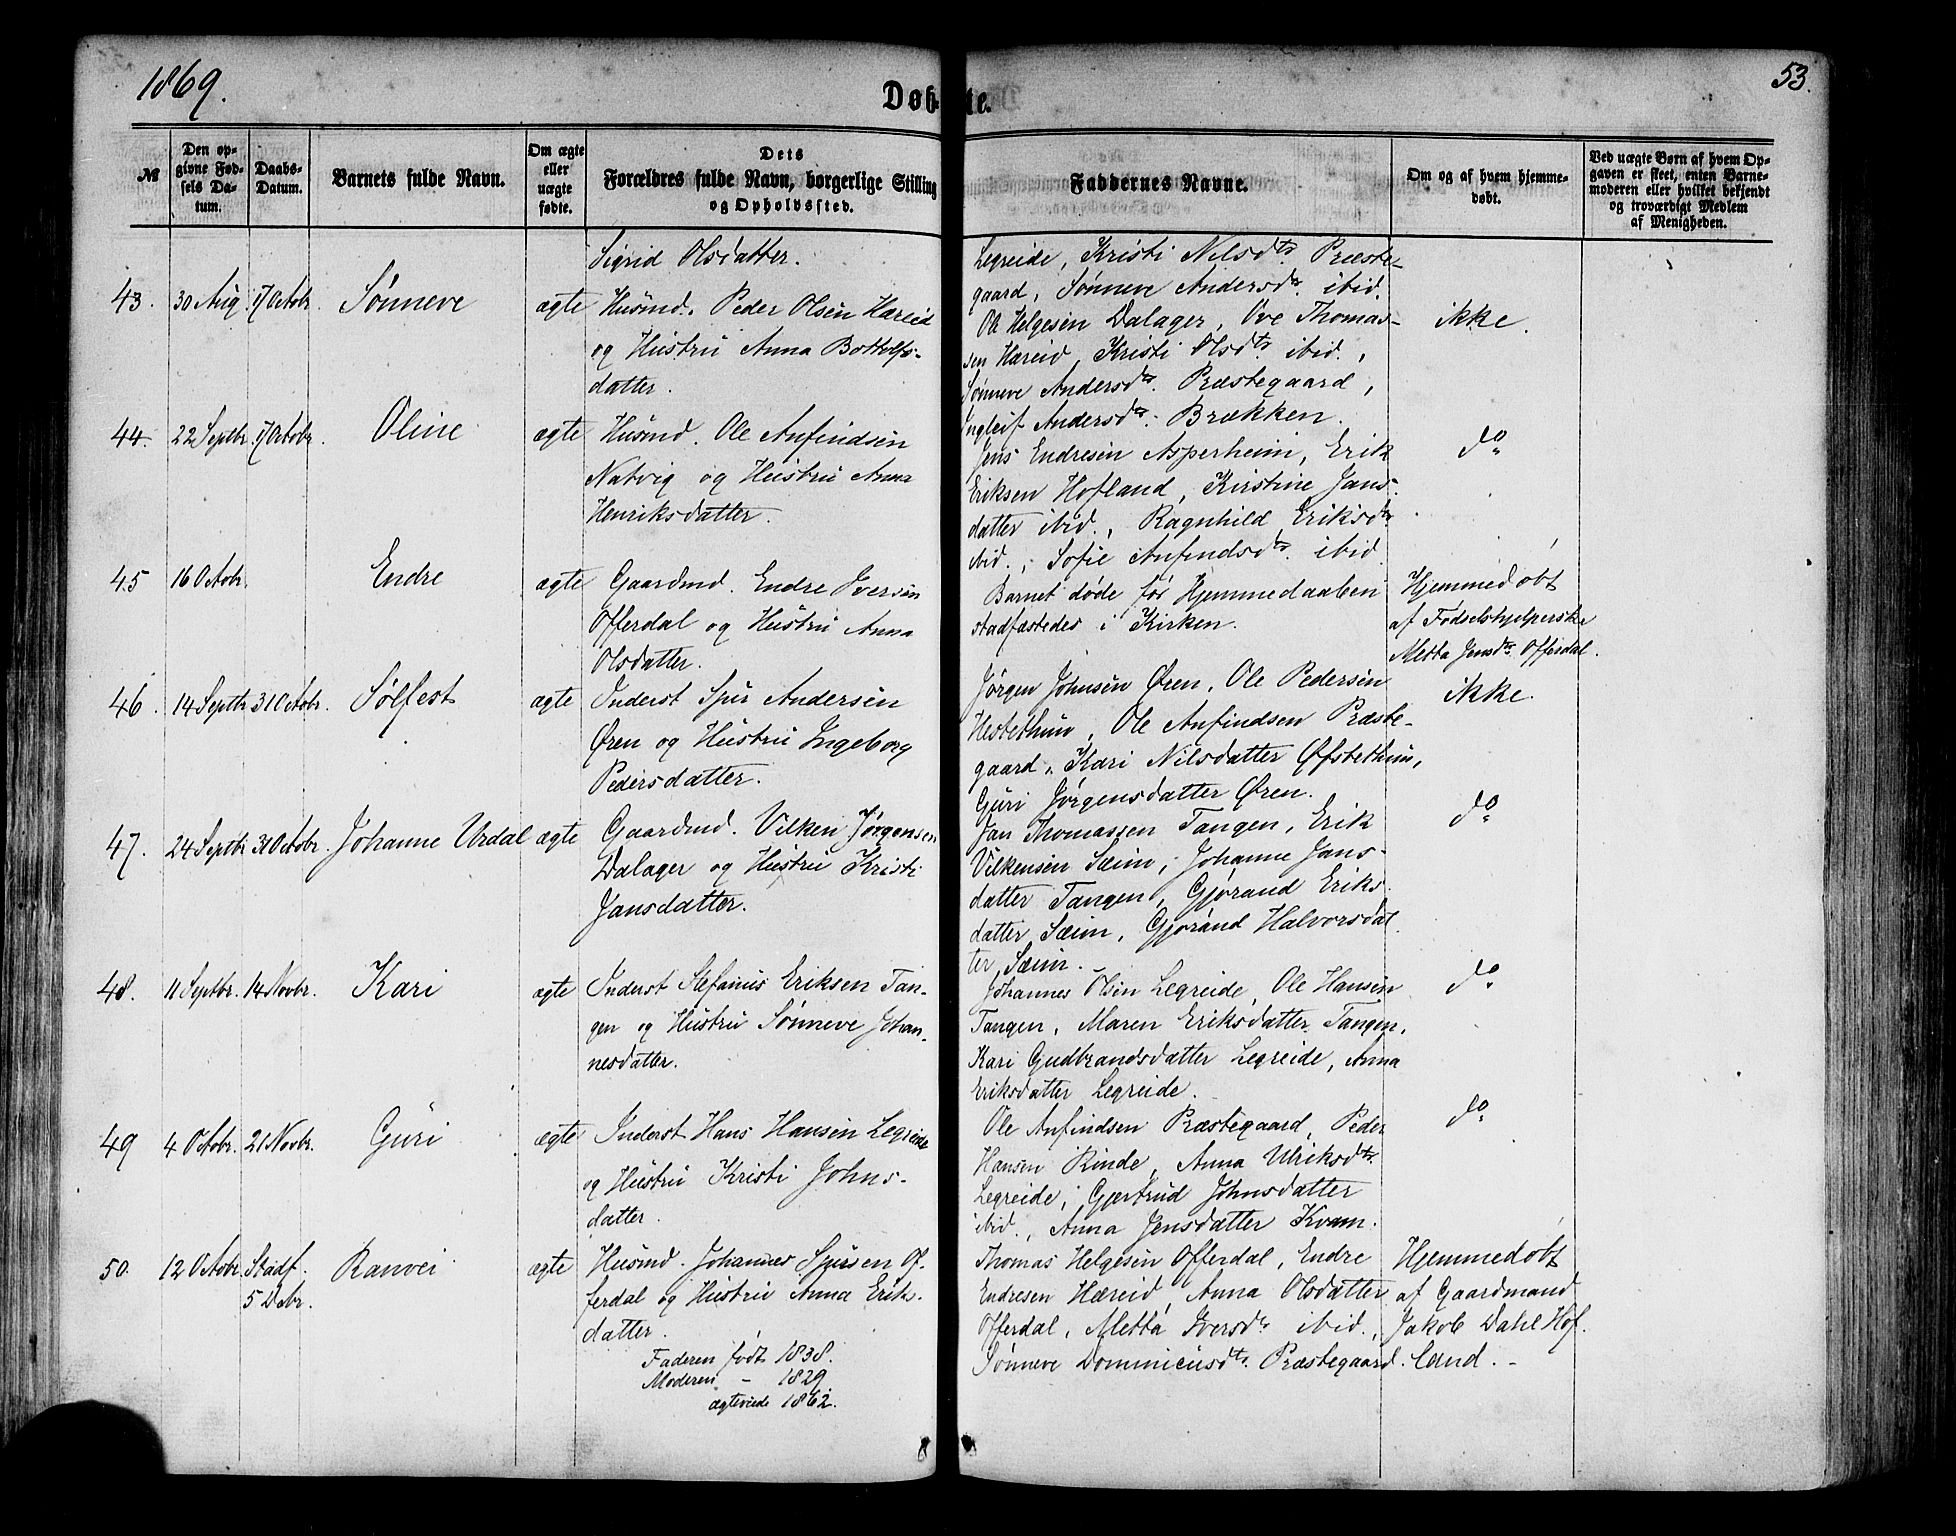 1869.
Døbte.
53.
№
Den opgivne Fødsels Datum.
Daabs-Datum.
Barnets fulde Navn.
Om ægte eller uægte fødte.
Dets Forældres fulde Navn, borgerlige Stilling og Opholdssted.
Faddernes Navne.
Om og af hvem hjemmedøbt.
Ved uægte Børn af hvem Opgaven er skeet, enten Barnemoderen eller hvilket bekjendt og troværdigt Medlem af Menigheden.
Sigrid Olsdatter.
Legreide, Kristi Nilsdtr Præste-
gaard, Sønneve Andersdtr ibid.
43. 30 Aug 17 Octobr Sønneve ægte Husmd. Peder Olsen Hæreid
og Hustru Anna Bottolfs-
datter.
Ole Helgesen Dalager, Ove Thomas-
sen Hæreid, Kristi Olsdtr ibid.,
Sønneve Andersdtr. Præstegaard,
Ingleif Andersdtr. Brækken.
ikke.
44. 22 Septbr. 17 Octobr. Oline ægte Husmd. Ole Anfindsen
Natvig og Hustru Anna
Henriksdatter.
Jens Endresen Asperheim, Erik
Eriksen Hofland, Kirstine Jans-
datter ibid., Ragnhild Eriksdtr
ibid., Sofie Anfindsdtr. ibid.
do
45 16 Octobr. Endre ægte Gaardmd. Endre Iversen
Offerdal og Hustru Anna
Olsdatter.
Barnet døde før Hjemmedaaben
stadfæstedes i Kirken.
Hjemmedøbt
af Fødselshjelperske
Metta Jensdtr Offerdal.
46. 14 Septbr 31 Octobr. Sølfest ægte Inderst Sjur Andersen
Øren og Hustru Ingeborg
Pedersdatter.
Jørgen Johnsen Øren, Ole Pedersen
Hestethun, Ole Anfindsen Præste-
gaard, Kari Nilsdatter Øfstethun,
Guri Jørgensdatter Øren.
ikke.
47. 24 Septbr 31 Octobr. Johanne Urdal ægte Gaardmd. Vilken Jørgensen
Dalager og Hustru Kristi
Jansdatter.
Jan Thomassen Tangen, Erik
Vilkensen Sæim, Johanne Jans-
datter Tangen, Gjørand Eriks-
datter Sæim, Gjørand Halvorsdat
ter Sæim.
do
48. 11 Septbr. 14 Novbr. Kari ægte Inderst Stefanus Eriksen Tan-
gen og Hustru Sønneve Johan-
nesdatter.
Johannes Olsen Legreide, Ole Hansen
Tangen, Maren Eriksdatter Tangen,
Kari Gudbrandsdatter Legreide, Anna
Eriksdatter Legreide.
do
49 4 Octobr. 21 Novbr. Guri ægte Inderst Hans Hansen Legreide
og Hustru Kristi Johns-
datter.
Ole Anfindsen Præstegaard, Peder
Hansen Rinde, Anna Ulriksdtr.
Legreide, Gjertrud Johnsdatter
ibid., Anna Jensdatter Kvam.
do
50. 12 Octobr. Stadf. 5 Debr. Ranvei ægte Husmd. Johannes Sjursen Of-
ferdal og Hustru Anna Erik-
datter.
Faderen født 1838.
Moderen - 1829
ægteviede 1862.
Thomas Helgesen Offerdal, Endre
Endresen Hæreid, Anna Olsdatter
Offerdal, Metta Iversdtr ibid.,
Sønneve Dominicusdtr. Præstegaard.
Hjemmedøbt
af Gaardmand
Jakob Dahl Hof-
land.